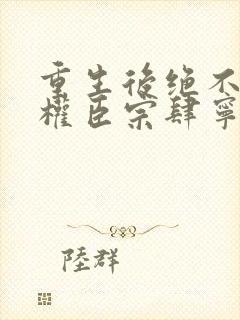 重生後绝不
權臣宗肆寧
陸群